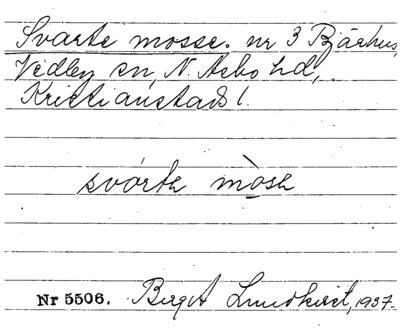 Svarte mosse. nr 3 Bjärhus,
Vedby sn, N. Åsbo hd,
Kristianstads l.
svárte mòse
Nr 5506. Birgit Lundkvist, 1937.